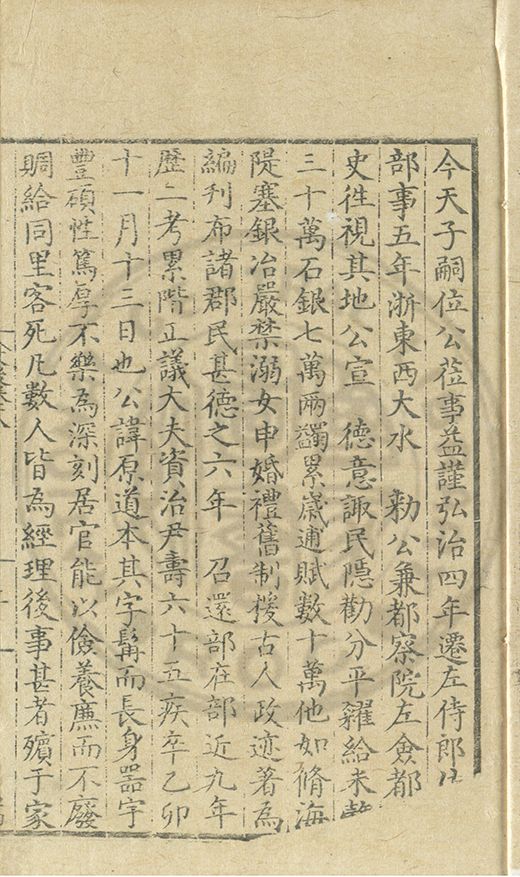 今天子嗣位公蒞事益謹弘治四年遷左侍郎
部事五年浙東西大水　勑公兼都察院左僉都
史徃視其地公宣　德意諏民隱勸分平糴給米
三十萬石銀七萬兩蠲累歲逋賦數十萬他如脩海
隄塞銀冶嚴禁溺女申婚禮舊制援古人政迹著為
編刋布諸郡民甚德之六年　召還部在部近九年
歷二考累階正議大夫資治尹壽六十五疾卒乙卯
十一月十三日也公諱原道本其字髯而長身器宇
豐碩性篤厚不樂為深刻居官能以儉養廉而不廢
賙給同里客死凡數人皆為經理後事甚者殯于家